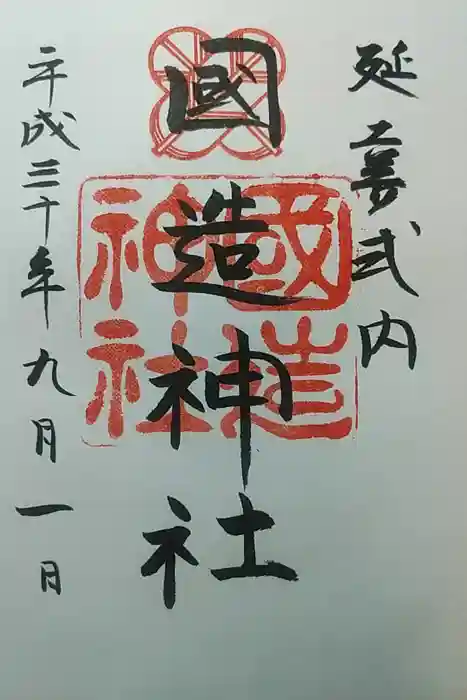 延喜式内
國造神社
國造神社
平成三十年九月一日